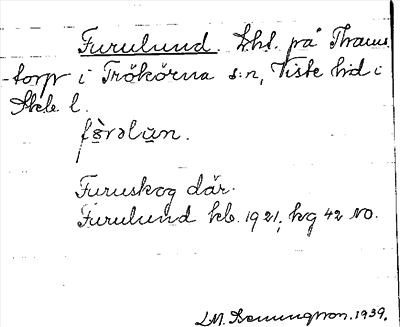 Furulund. Lht. på Thams-
-torp i Trökörna s:n, Viste hd i
Skb l.
fø̀rəlun.
Furuskog där.
Furulund kb. 1921, kg 42 NO.
L.M. 1939.